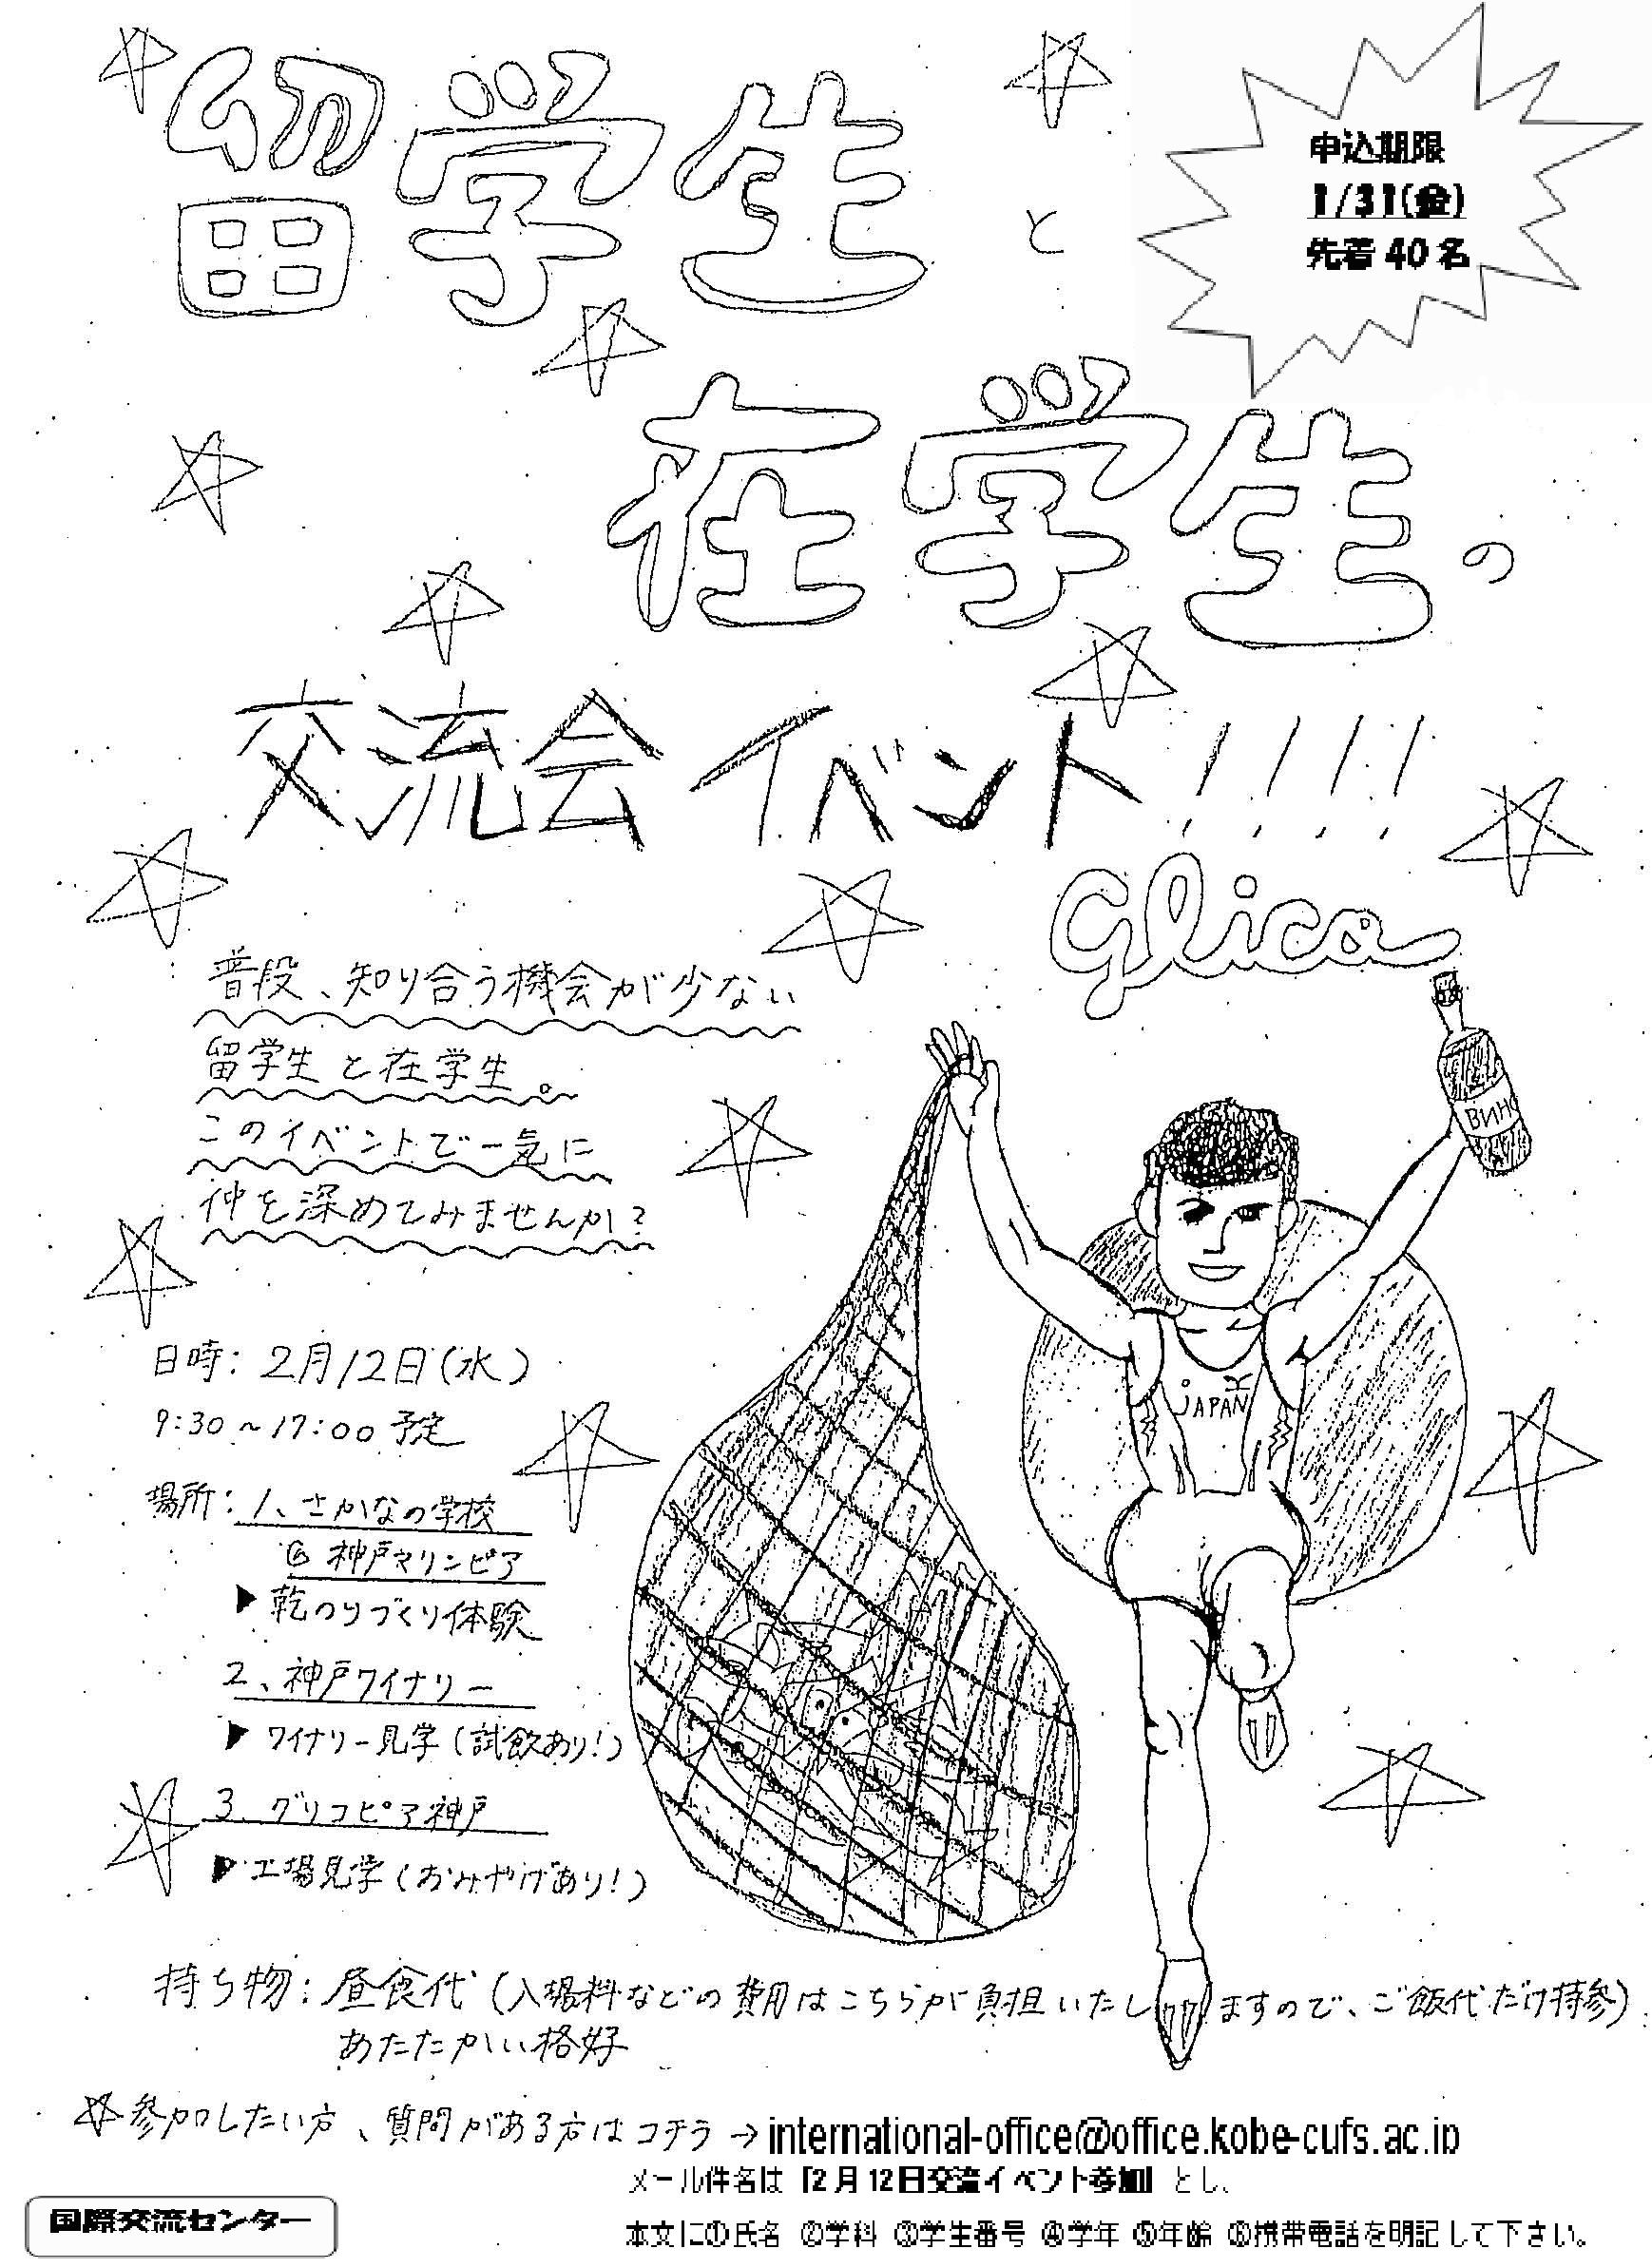 留学生と
申込期限
1/31(金)
先着40名
在学生の
交流会イベント!!!!
Glico
普段、知り合う機会が少ない
留学生と在学生。
このイベントで一気に
仲を深めてみませんか?
ВИНО
JAPAN
日時:2月12日(水)
9:30~17:00予定
場所:1、さかなの学校
@神戸マリンピア
▶乾のりづくり体験
2、神戸ワイナリー
▶ワイナリー見学(試飲あり!)
3、グリコピア神戸
▶工場見学(おみやげあり!)
持ち物:昼食代(入場料などの費用はこちらが負担いたしますので、ご飯代だけ持参)
あたたかい格好
☆参加したい方、質問がある方はコチラ→international-office@office.kobe-cufs.ac.jp
メール件名は「2月12日交流イベント参加」とし、
本文に①氏名 ②学科 ③学生番号 ④学年 ⑤年齢 ⑥携帯電話を明記して下さい。
国際交流センター